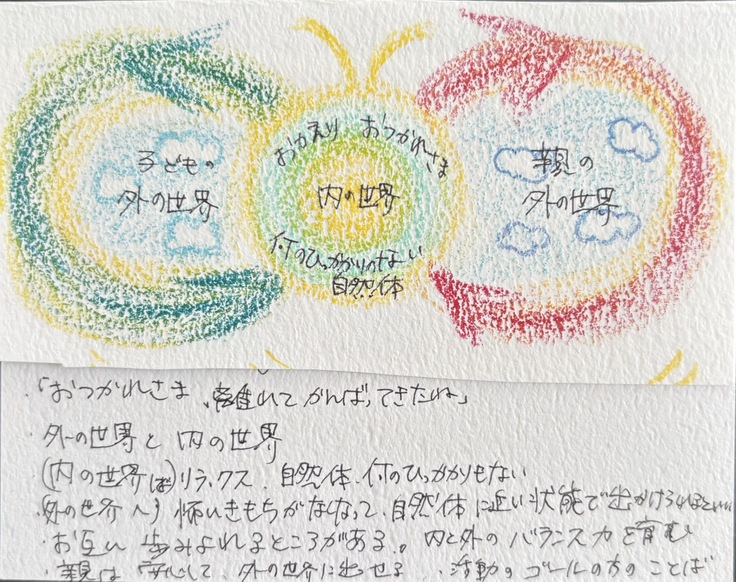 子どもの
外の世界
おかえり おつかれさま
内の世界
何のひっかかりのない
自然体
親の
外の世界
・「おつかれさま、離れてがんばってきたね」
・外の世界と内の世界
(内の世界は)リラックス、自然体、何のひっかかりもない
・外の世界へ行 怖いきもちがなくなって、自然体に近い状態で出かけられるといい
・お互い歩みよれるところがある。内と外のバランス力を育む
・親は安心して、外の世界に出せる ・活動のゴールの方のことば